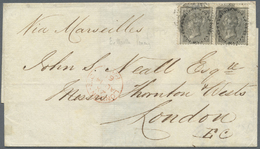 Via Marseilles
John S. Neall Esqre
Messrs Thomson Wests
London
E C